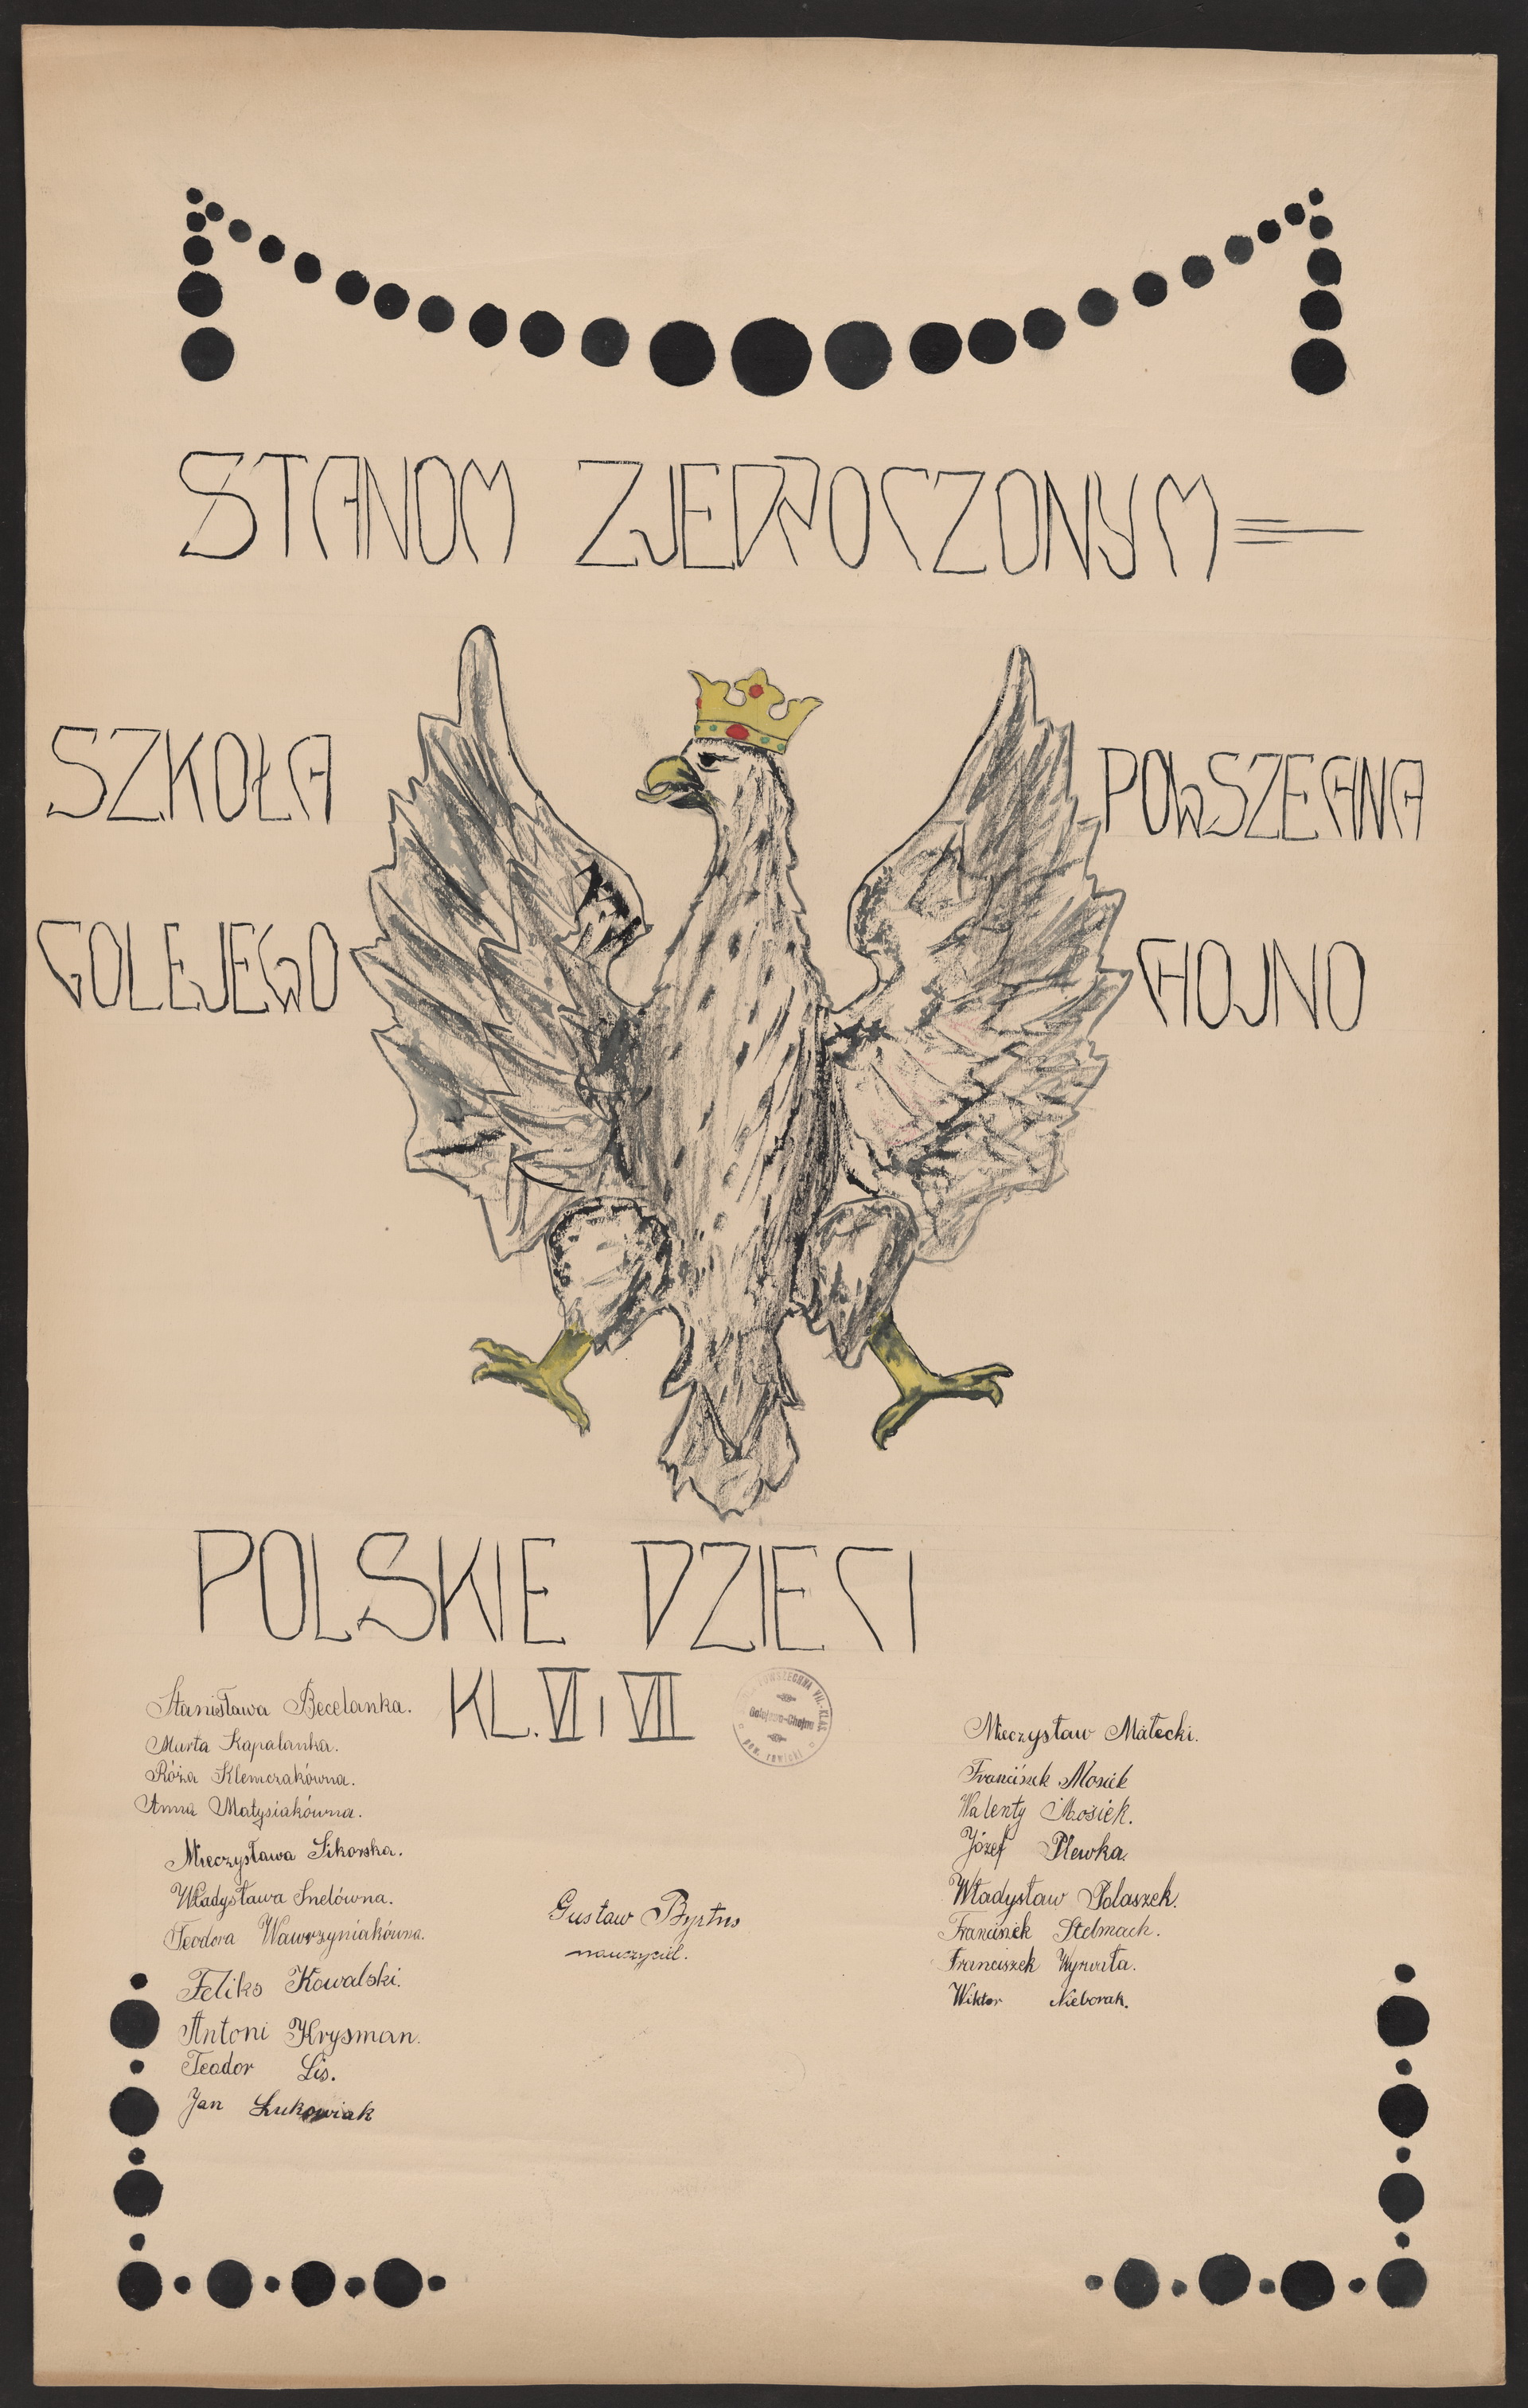 STANOM ZJEDNOCZONYM =
SZKOŁA POWSZECHNA
GOLEJEWO CHOJNO
POLSKIE DZIECI
KL. VI i VII
POWSZECHNA VII-KLAS.
Golejewo-Chojno
pow. rawicki
Stanisława Becelanka.
Marta Kapalanka.
Róża Klemczakówna.
Anna Matysiakówna.
Mieczysława Sikorska.
Władysława Snelówna.
Teodora Wawrzyniakówna.
Feliks Kowalski.
Antoni Krysman.
Teodor Lis.
Jan Łukowiak
Gustaw Byrtus
nauczyciel.
Mieczysław Małecki.
Franciszek Mosiek
Walenty Mosiek.
Józef Plewka.
Władysław Polaszek.
Franciszek Stelmach.
Franciszek Wyrwała.
Wiktor Nieborak.